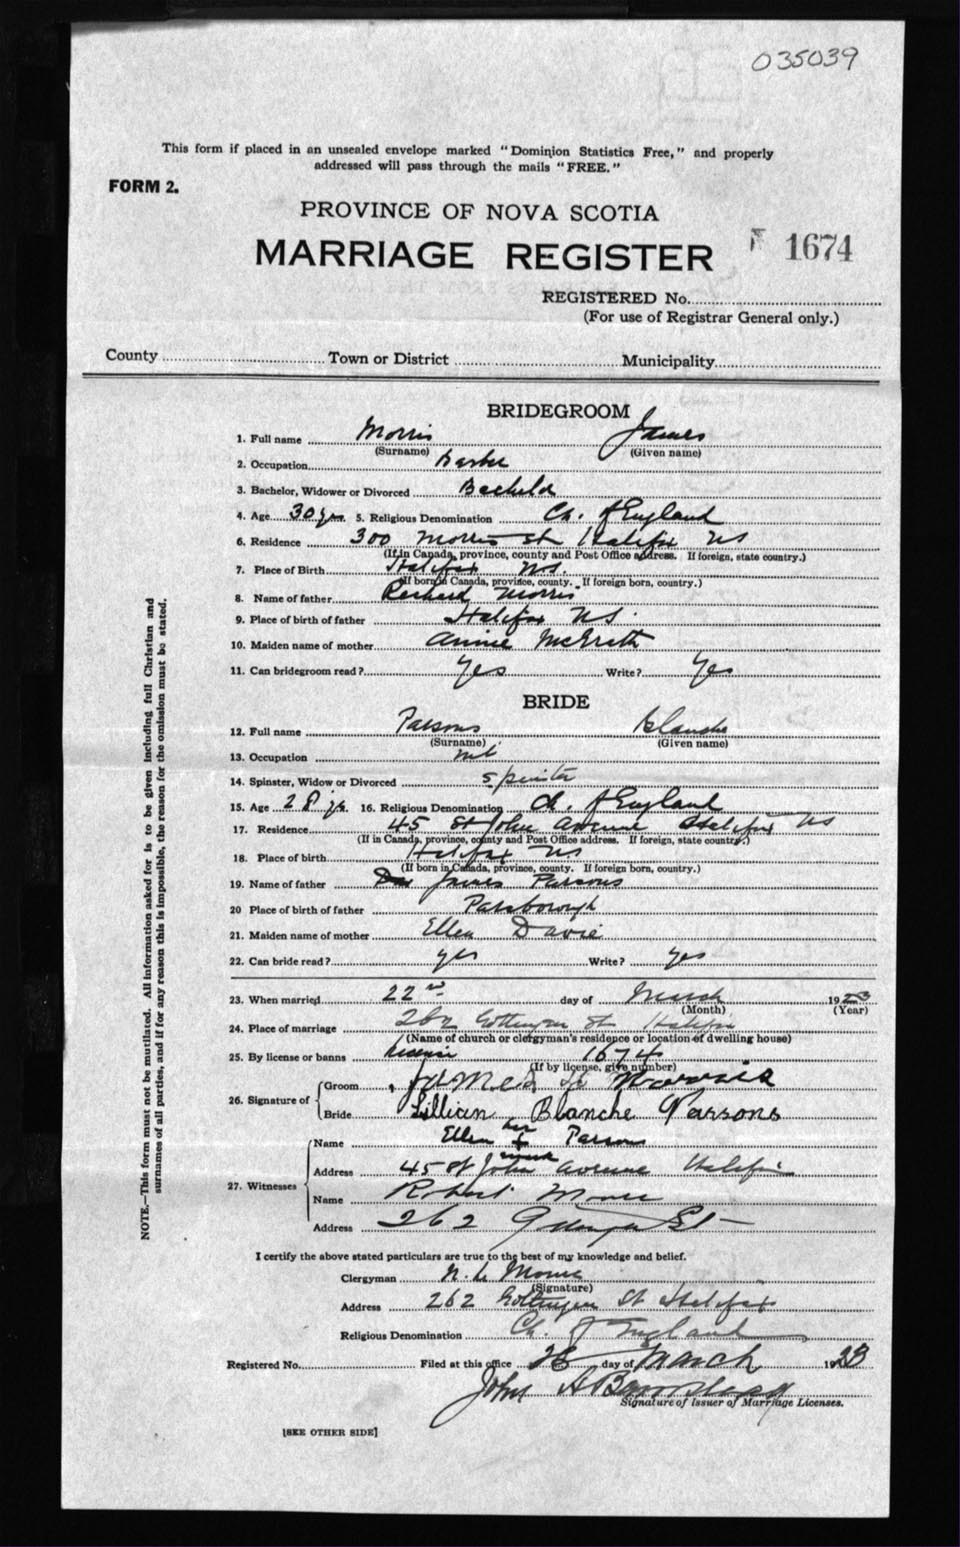 035039
This form if placed in an unsealed envelope marked "Dominion Statistics Free," and properly
addressed will pass through the mails "FREE."
FORM 2.
PROVINCE OF NOVA SCOTIA
MARRIAGE REGISTER 1674
REGISTERED No.
(For use of Registrar General only.)
County Town or District Municipality
BRIDEGROOM
1. Full name Morris James
(Surname) (Given name)
2. Occupation
3. Bachelor, Widower or Divorced Bachelor
4. Age 30 yrs. 5. Religious Denomination Ch. of England
6. Residence 300 Morris St Halifax NS
(If in Canada, province, county and Post Office address. If foreign, state country.)
7. Place of Birth Halifax NS.
(If born in Canada, province, county. If foreign born, country.)
8. Name of father Richard Morris
9. Place of birth of father Halifax NS.
10. Maiden name of mother Annie McGrath
11. Can bridegroom read? Yes Write? Yes
BRIDE
12. Full name Parsons Blanche
(Surname) (Given name)
13. Occupation
14. Spinster, Widow or Divorced Spinster
15. Age 28 yrs 16. Religious Denomination Ch. of England
17. Residence 45 St John Avenue Halifax NS
(If in Canada, province, county and Post Office address. If foreign, state country.)
18. Place of birth Halifax NS
(If born in Canada, province, county. If foreign born, country.)
19. Name of father James Parsons
20 Place of birth of father Parsborough
21. Maiden name of mother Ellen Davie
22. Can bride read? yes Write? yes
23. When married 22nd day of March 1923
(Month) (Year)
24. Place of marriage 262 Gottingen St Halifax
(Name of church or clergyman's residence or location of dwelling house)
25. By license or banns license 1674
(If by license, give number)
26. Signature of Groom James Morris
Bride Lillian Blanche Parsons
27. Witnesses Name Ellen her x mark Parsons
Address 45 St John Avenue Halifax
Name Robert
Address 262 St
I certify the above stated particulars are true to the best of my knowledge and belief.
Clergyman
(Signature)
Address 262 Gottingen St Halifax
Religious Denomination Ch. of England
Registered No. Filed at this office 26 day of March 1923
John A
Signature of Issuer of Marriage Licenses.
[SEE OTHER SIDE]
NOTE.—This form must not be mutilated. All information asked for is to be given including full Christian and
surnames of all parties, and if for any reason this is impossible, the reason for the omission must be stated.